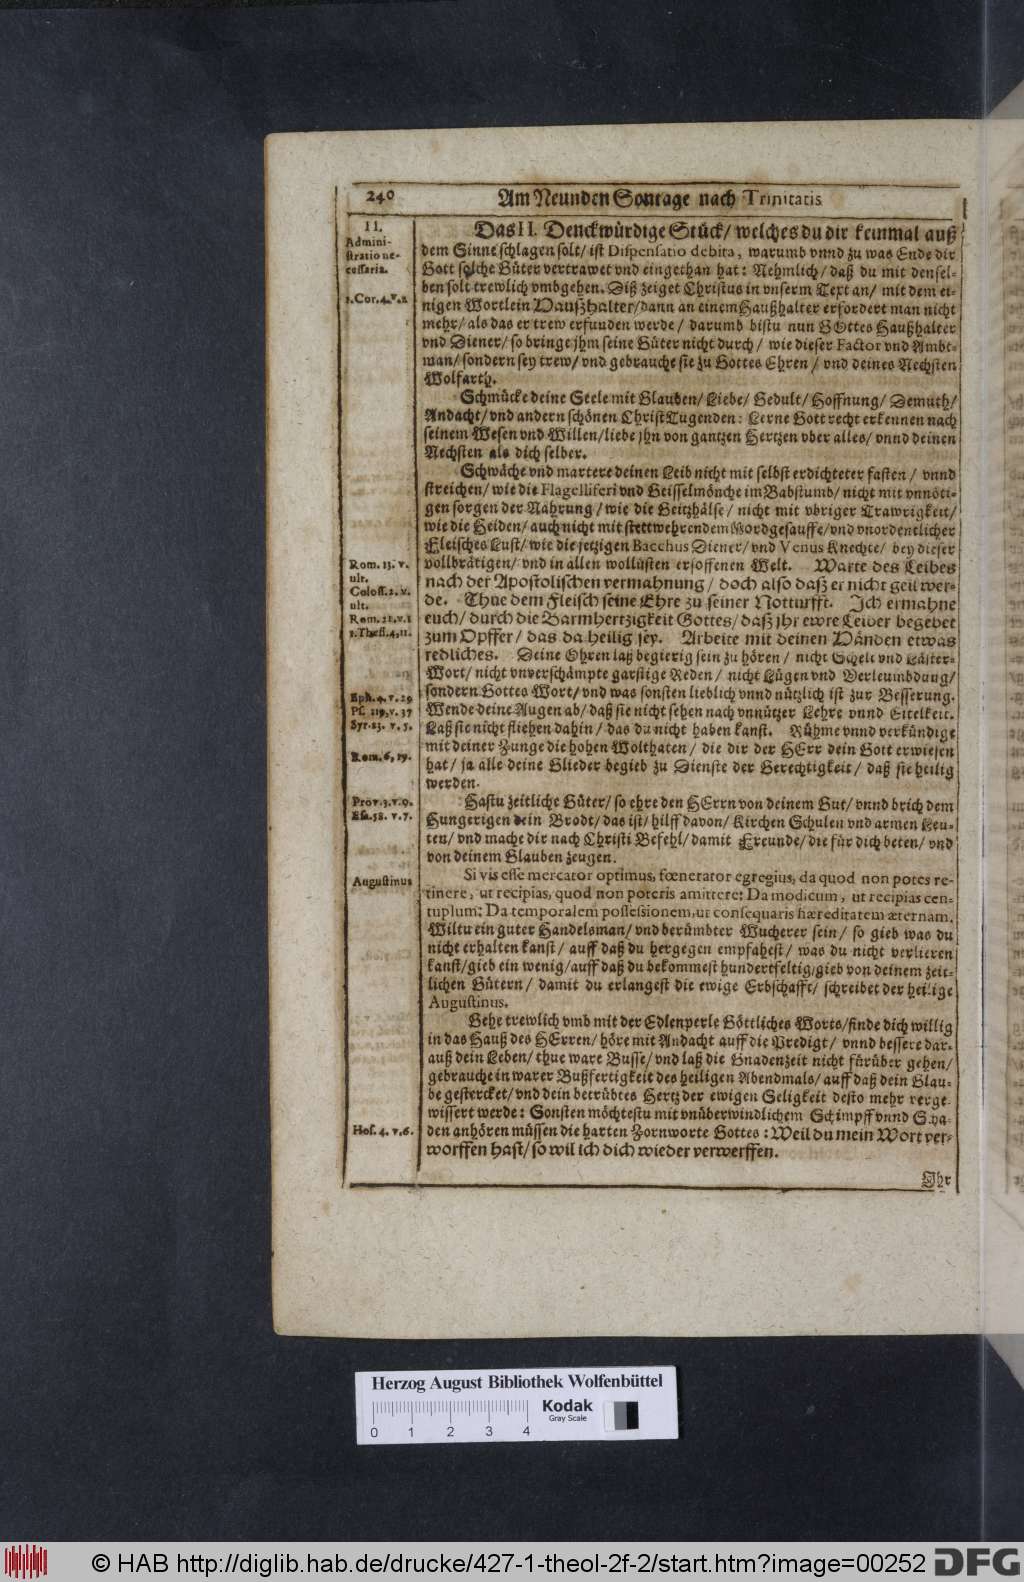 240
Am Neunden Sontage nach Trinitatis
II.
Admini-
stratio ne-
cessaria.
1.Cor.4.v.2
Rom. 13. v.
ult.
Coloss.2. v.
ult.
Rom. 12.v.1
1.Thess.4,11.
Eph.4.v.29
Ps. 119,v.37
Syr.23. v.5.
Rom.6,19.
Prov.3.v.9.
Esa.58. v.7.
Augustinus
Hos.4.v.6.
Das II. Denckwürdige Stück/ welches du dir keinmal auß
dem Sinne schlagen solt/ ist Dispensatio debita, warumb vnnd zu was Ende dir
Gott solche Güter vertrawet vnd eingethan hat: Nehmlich/ daß du mit densel-
ben solt trewlich vmbgehen. Diß zeiget Christus in vnserm Text an/ mit dem ei-
nigen Wortlein Haußhalter/dann an einem Haußhalter erfordert man nicht
mehr/ als das er trew erfunden werde/ darumb bistu nun GOttes Haußhalter
vnd Diener/ so bringe jhm seine Güter nicht durch/ wie dieser Factor vnd Ambt-
man/ sondern sey trew/ vnd gebrauche sie zu Gottes Ehren/ vnd deines Nechsten
Wolfarth.
Schmücke deine Seele mit Glauben/ Liebe/ Gedult/ Hoffnung/ Demuth/
Andacht/ vnd andern schönen Christ Tugenden: Lerne Gott recht erkennen nach
seinem Wesen vnd Willen/liebe jhn von gantzen Hertzen vber alles/ vnnd deinen
Nechsten als dich selber.
Schwäche vnd martere deinen Leib nicht mit selbst erdichteter fasten/ vnnd
streichen/ wie die Flagelliferi vnd Geisselmönche im Babstumb/ nicht mit vnnöti-
gen sorgen der Nahrung/ wie die Geitzhälse/ nicht mit vbriger Trawrigkeit/
wie die Heiden/ auch nicht mit stettwehrendem Mordgesauffe/vnd vnordentlicher
Fleisches Lust/ wie die jetzigen Bacchus Diener/ vnd Venus Knechte/ bey dieser
vollbrätigen/ vnd in allen wollüsten ersoffenen Welt. Warte des Leibes
nach der Apostolischen vermahnung/ doch also daß er nicht geil wer-
de. Thue dem Fleisch seine Ehre zu seiner Notturfft. Ich ermahne
euch/ durch die Barmhertzigkeit Gottes/ daß jhr ewre Leiber begebet
zum Opffer/ das da heilig sey. Arbeite mit deinen Händen etwas
redliches. Deine Ohren laß begierig sein zu hören/ nicht Schelt vnd Läster-
Wort/ nicht vnverschämpte garstige Reden/ nicht Lügen vnd Verleumbdung/
sondern Gottes Wort/ vnd was sonsten lieblich vnnd nützlich ist zur Besserung.
Wende deine Augen ab/ daß sie nicht sehen nach vnnützer Lehre vnnd Eitelkeit.
Laß sie nicht fliehen dahin/ das du nicht haben kanst. Rühme vnnd verkündige
mit deiner Zunge die hohen Wolthaten/ die dir der HErr dein Gott erwiesen
hat/ ja alle deine Glieder begieb zu Dienste der Gerechtigkeit/ daß sie heilig
werden.
Hastu zeitliche Güter/ so ehre den HErrn von deinem Gut/ vnnd brich dem
Hungerigen dein Brodt/ das ist/ hilff davon/ Kirchen Schulen vnd armen Leu-
ten/ vnd mache dir nach Christi Befehl/ damit Freunde/ die für dich beten/ vnd
von deinem Glauben zeugen.
Si vis esse mercator optimus, fœnerator egregius, da quod non potes re-
tinere, ut recipias, quod non poteris amittere: Da modicum, ut recipias cen-
tuplum: Da temporalem possessionem, ut consequaris hæreditatem æternam.
Wiltu ein guter Handelsman/ vnd berümbter Wucherer sein/ so gieb was du
nicht erhalten kanst/ auff daß du hergegen empfahest/ was du nicht verlieren
kanst/gieb ein wenig/auff daß du bekommest hundertfeltig/gieb von deinem zeit-
lichen Gütern/ damit du erlangest die ewige Erbschafft/ schreibet der heilige
Augustinus.
Gehe trewlich vmb mit der Edlenperle Göttliches Worts/finde dich willig
in das Hauß des HErren/ höre mit Andacht auff die Predigt/ vnnd bessere dar-
auß dein Leben/ thue ware Busse/ vnd laß die Gnadenzeit nicht fürüber gehen/
gebrauche in warer Bußfertigkeit des heiligen Abendmals/ auff daß dein Glau-
be gestercket/ vnd dein betrübtes Hertz der ewigen Seligkeit desto mehr verge-
wissert werde: Sonsten möchtestu mit vnüberwindlichem Schimpff vnnd Scha-
den anhören müssen die harten Zornworte Gottes: Weil du mein Wort ver-
worffen hast/ so wil ich dich wieder verwerffen.
Ihr
Herzog August Bibliothek Wolfenbüttel
Kodak
Gray Scale
0 1 2 3 4
© HAB http://diglib.hab.de/drucke/427-1-theol-2f-2/start.htm?image=00252
DFG